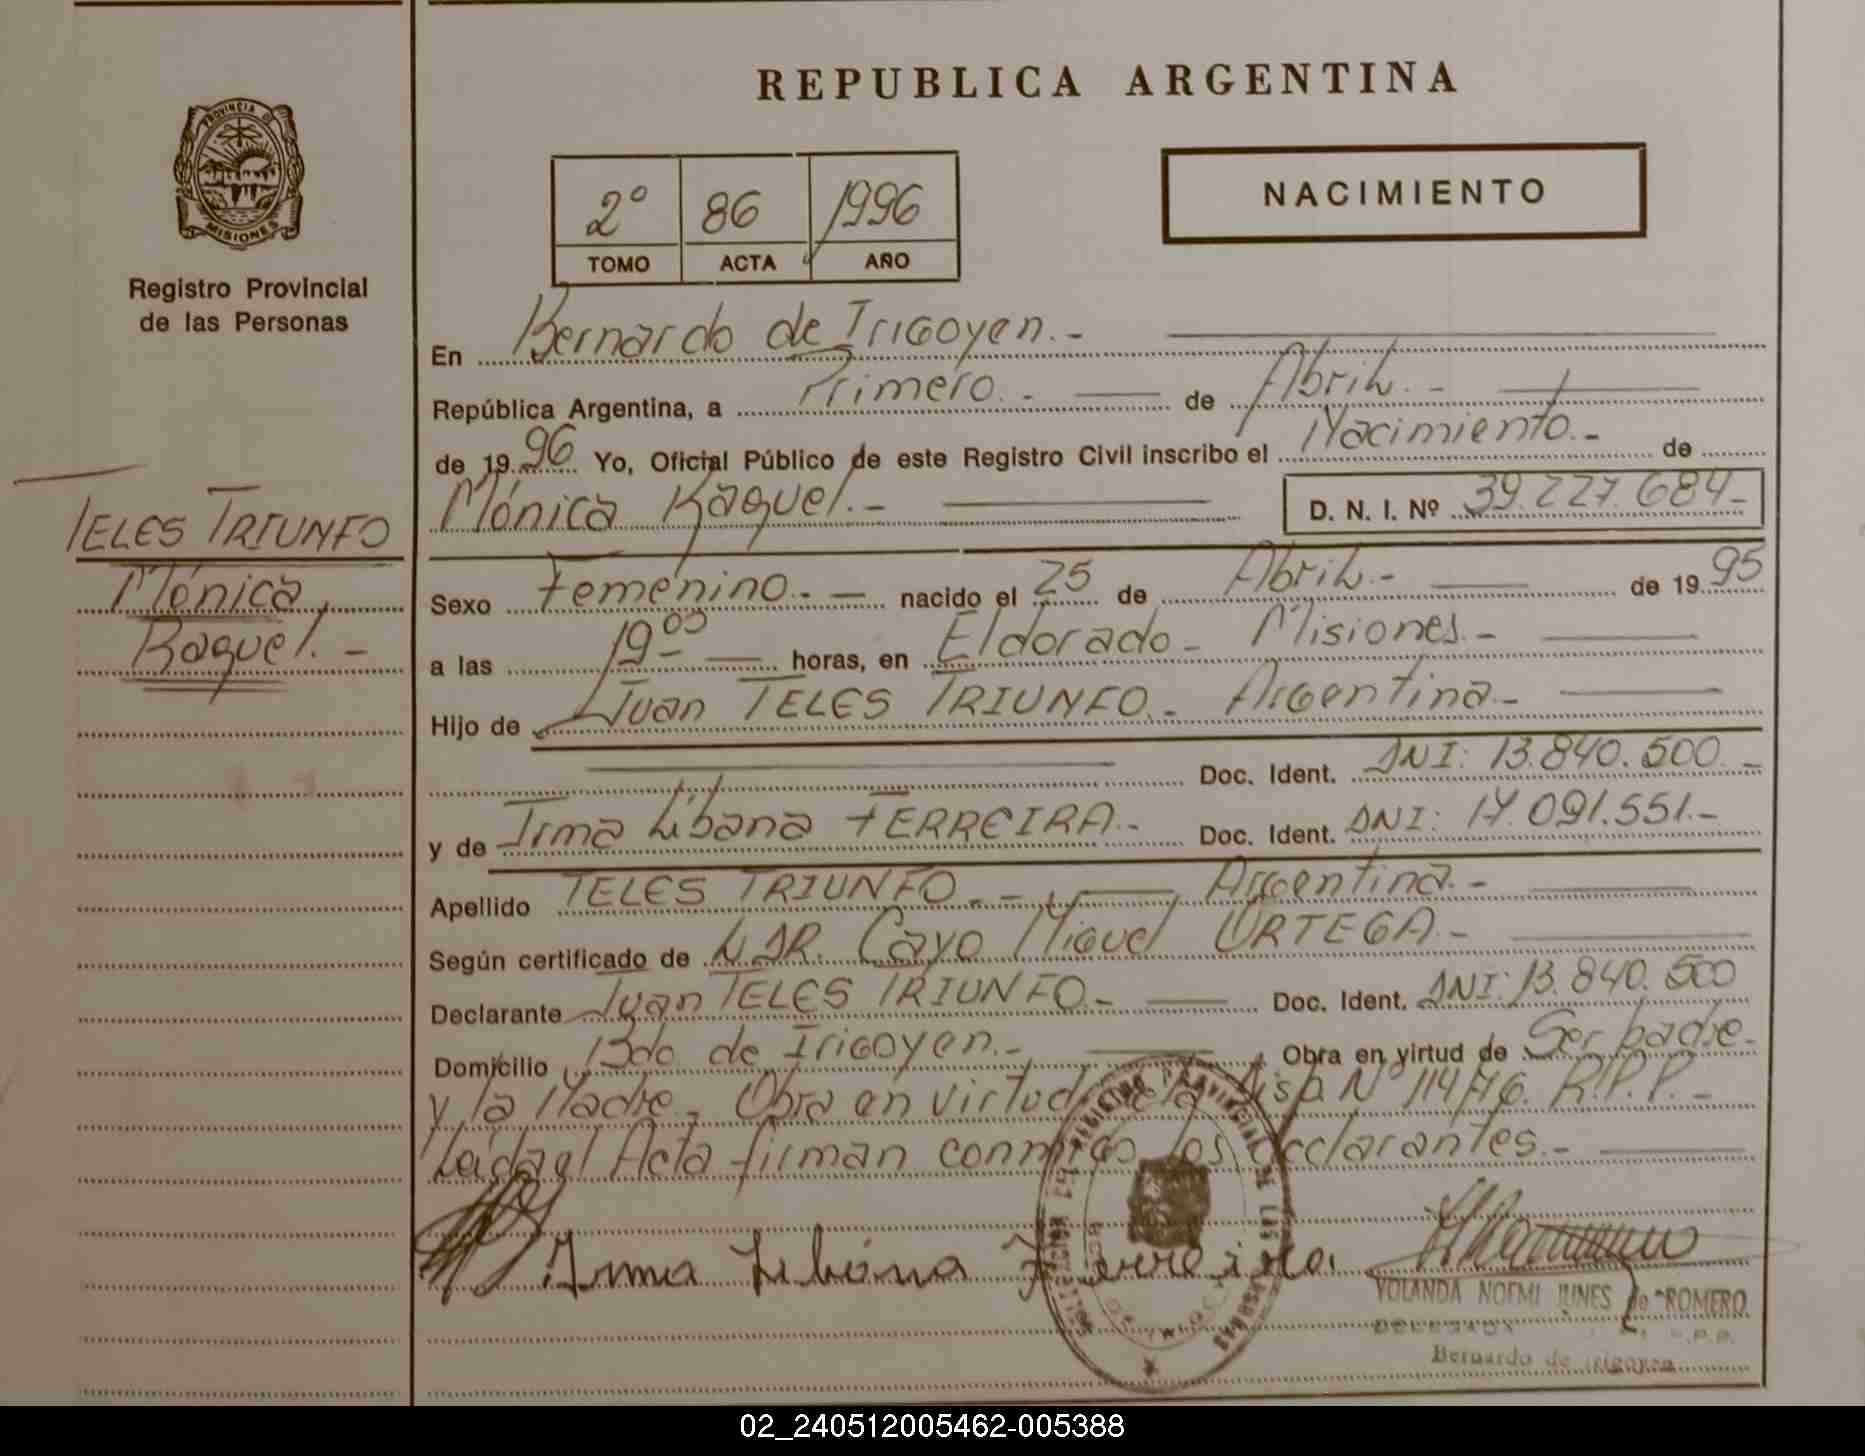 REPUBLICA ARGENTINA
PROVINCIA DE
MISIONES
Registro Provincial
de las Personas
NACIMIENTO
2º 86 1996
TOMO ACTA AÑO
En Bernardo de Irigoyen.-
República Argentina, a Primero.- de Abril.-
de 1996 Yo, Oficial Público de este Registro Civil inscribo el Nacimiento.- de
Mónica Raquel.- D. N. I. Nº 39.227.684-
TELES TRIUNFO
Mónica
Raquel.-
Sexo Femenino.- nacido el 25 de Abril.- de 1995
a las 19 00 horas, en Eldorado- Misiones.-
Hijo de Juan TELES TRIUNFO.- Argentina-
Doc. Ident. DNI: 13.840.500.-
y de Irma Libana FERREIRA.- Doc. Ident. DNI: 17.091.551.-
Apellido TELES TRIUNFO.- Argentina.-
Según certificado de DR. Cayo Miguel ORTEGA.-
Declarante Juan TELES TRIUNFO.- Doc. Ident. DNI: 13.840.500
Domicilio Bdo de Irigoyen.- Obra en virtud de Ser padre-
y la Madre.- Obra en virtud de la Disp. Nº 114/76. R.P.P.-
Leida el Acta firman conmigo los declarantes.-
REGISTRO PROVINCIAL DE LAS PERSONAS
Irma Libana Ferreira
YOLANDA NOEMI de ROMERO
DELEGADA R.P.P.
Bernardo de Irigoyen
02_240512005462-005388